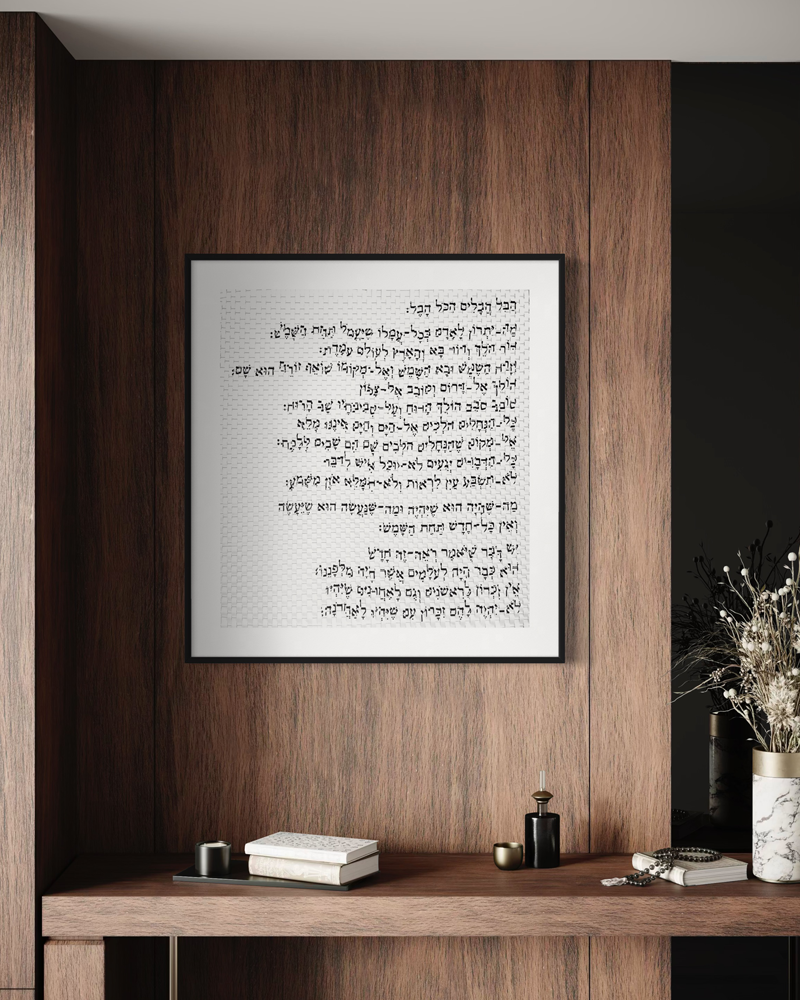 הֲבֵל הֲבָלִים הַכֹּל הָבֶל:
מַה־יִּתְרוֹן לָאָדָם בְּכָל־עֲמָלוֹ שֶׁיַּעֲמֹל תַּחַת הַשָּׁמֶשׁ:
דּוֹר הֹלֵךְ וְדוֹר בָּא וְהָאָרֶץ לְעוֹלָם עֹמָדֶת:
וְזָרַח הַשֶּׁמֶשׁ וּבָא הַשָּׁמֶשׁ וְאֶל־מְקוֹמוֹ שׁוֹאֵף זוֹרֵחַ הוּא שָׁם:
הוֹלֵךְ אֶל־דָּרוֹם וְסוֹבֵב אֶל־צָפוֹן
סוֹבֵב סֹבֵב הוֹלֵךְ הָרוּחַ וְעַל־סְבִיבֹתָיו שָׁב הָרוּחַ:
כָּל־הַנְּחָלִים הֹלְכִים אֶל־הַיָּם וְהַיָּם אֵינֶנּוּ מָלֵא
אֶל־מְקוֹם שֶׁהַנְּחָלִים הֹלְכִים שָׁם הֵם שָׁבִים לָלָכֶת:
כָּל־הַדְּבָרִים יְגֵעִים לֹא־יוּכַל אִישׁ לְדַבֵּר
לֹא־תִשְׂבַּע עַיִן לִרְאוֹת וְלֹא־תִמָּלֵא אֹזֶן מִשְּׁמֹעַ:
מַה־שֶּׁהָיָה הוּא שֶׁיִּהְיֶה וּמַה־שֶּׁנַּעֲשָׂה הוּא שֶׁיֵּעָשֶׂה
וְאֵין כָּל־חָדָשׁ תַּחַת הַשָּׁמֶשׁ:
יֵשׁ דָּבָר שֶׁיֹּאמַר רְאֵה־זֶה חָדָשׁ
הוּא כְּבָר הָיָה לְעֹלָמִים אֲשֶׁר הָיָה מִלְּפָנֵנוּ:
אֵין זִכְרוֹן לָרִאשֹׁנִים וְגַם לָאַחֲרֹנִים שֶׁיִּהְיוּ
לֹא־יִהְיֶה לָהֶם זִכָּרוֹן עִם שֶׁיִּהְיוּ לָאַחֲרֹנָה: